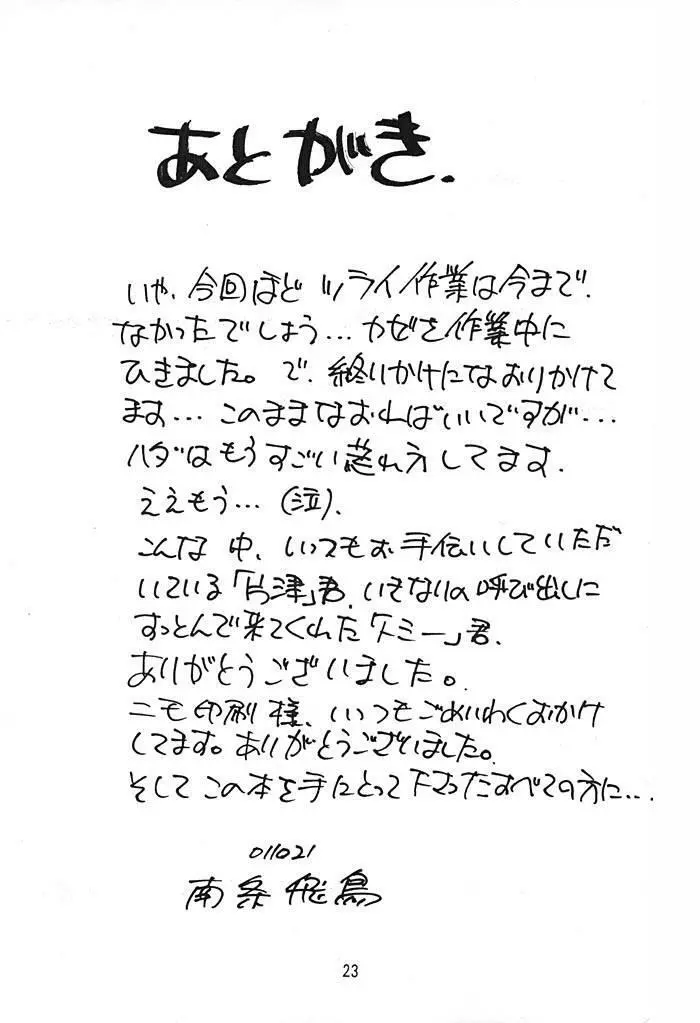 あとがき.
いや、今回ほど ツライ作業は今まで、
なかったでしょう… カゼを作業中に
ひきました。で、終りかけになおりかけて
ます… このままなおればいいですが…
ハダはもうすごい荒れ方してます.
ええもう…(泣).
こんな中、いつもお手伝いしていただ
いている「片津」君、いきなりの呼び出しに
すっとんで来てくれた「トミー」君、
ありがとうございました。
ニモ印刷様、いつもごめいわくおかけ
してます。ありがとうございました。
そして この本を手にとって下さったすべての方に…
011021
南条飛鳥
23